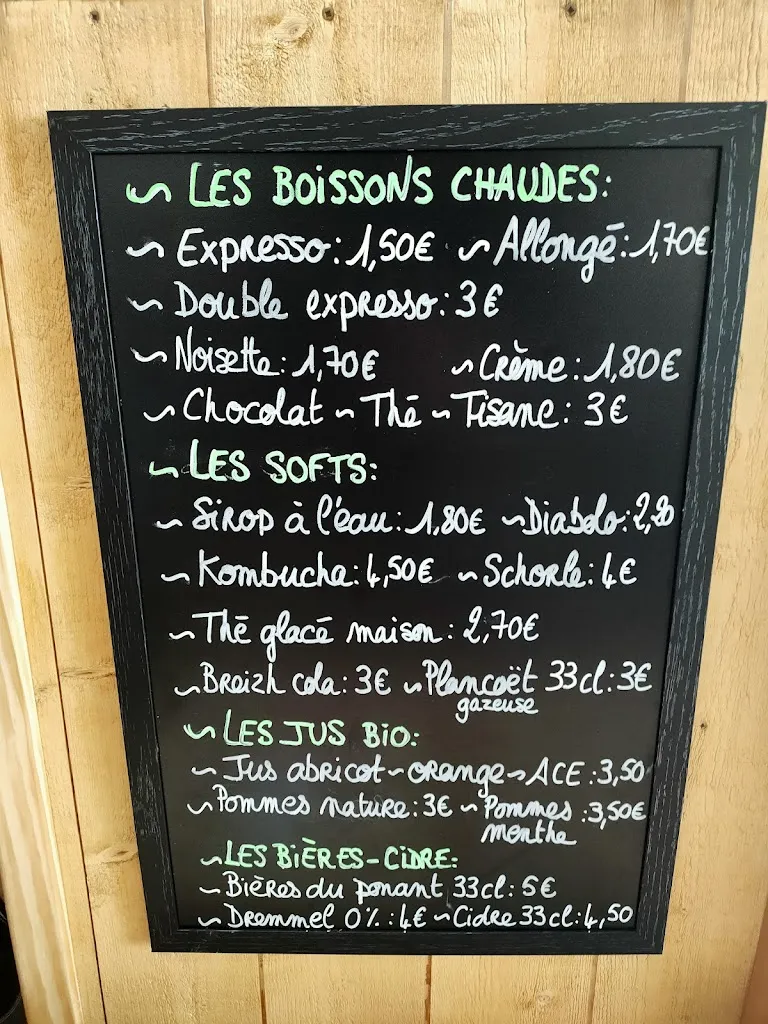 ~ LES BOISSONS CHAUDES:
~ Expresso: 1,50€ ~ Allongé: 1,70€
~ Double expresso: 3€
~ Noisette: 1,70€ ~ Crème: 1,80€
~ Chocolat ~ Thé ~ Tisane: 3€
~ LES SOFTS:
~ Sirop à l'eau: 1,80€ ~ Diabolo: 2,20
~ Kombucha: 4,50€ ~ Schorle: 4€
~ Thé glacé maison: 2,70€
~ Breizh cola: 3€ ~ Plancoët 33cl: 3€
gazeuse
~ LES JUS BIO:
~ Jus abricot ~ orange ~ ACE: 3,50
~ Pommes nature: 3€ ~ Pommes : 3,50€
menthe
~ LES BIÈRES-CIDRE:
~ Bières du ponant 33cl: 5€
~ Dremmel 0%: 4€ ~ Cidre 33cl: 4,50